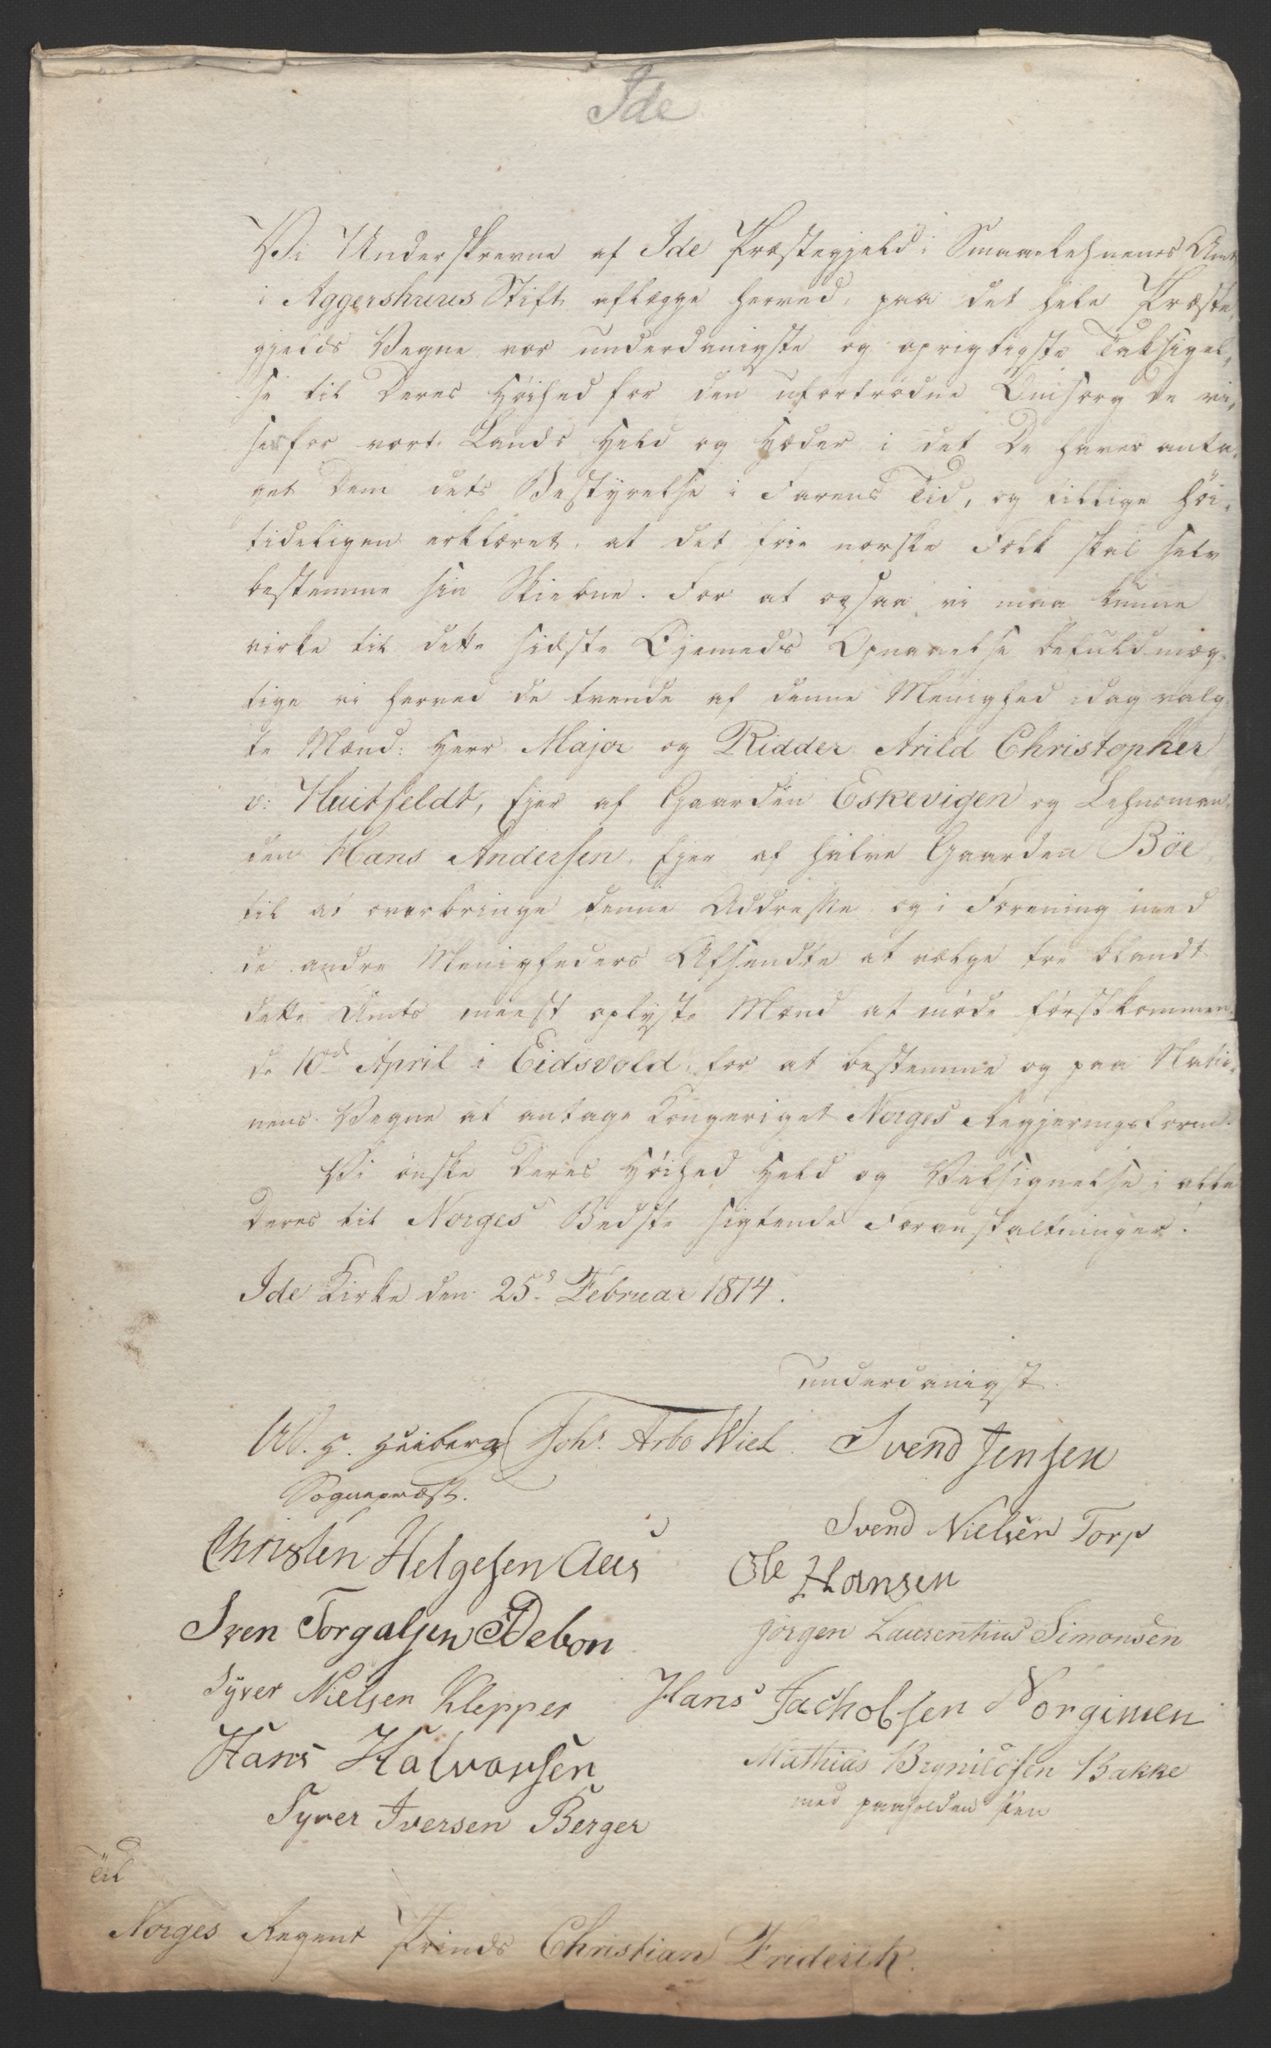 Ide
Vi Underskrevne af Ide Præstegjeld i Smaaelehnenes Amt
i Aggershuus Stift aflægge herved, paa det hele Præste-
gjelds Vegne vor underdanigste og oprigtigste Taksigel-
se til Deres Höihed for den ufortrödne Omsorg De vi-
ser for vort Lands Held og Hæder i det De haver anta-
get Dem dets Bestyrelse i Farens Tid, og tillige höi-
tideligen erklæret, at det frie norske Folk skal selv
bestemme sin Skiebne. For at ogsaa vi maa kunne
virke til dette sidste Øjemeds Opnaaelse befuldmæg-
tige vi herved de tvende af denne Menighed idag valg-
te Mænd: Herr Major og Ridder Arild Christopher
v: Huitfeldt, Ejer af Gaarden Eskevigen og Lehnsman-
den Hans Andersen, Ejer af halve Gaarden Böe
til at overbringe denne Addresse og i Forening med
de andre Menigheders Afsendte at vælge tre blandt
dette Amts meest oplyste Mænd at möde förstkommen-
de 10de April i Eidsvold, for at bestemme og paa Natio-
nens Vegne at antage Kongeriget Norges Regjeringsform.
Vi önske Deres Höihed Held og Velsignelse i alle
Deres til Norges Bedste sigtende Foranstaltninger!
Ide Kirke den 25s Februar 1814.
underdanigst
W. H. Heiberg Johs. Arbo Wiel Svend Jensen
Sognepræst.
Svend Nielsen Torp
Christen Helgesen Aus Ole Hansen
Sven Torgalsen Debon Jörgen Laurentius Simonsen
Syver Nielsen Klepper Hans Jacholsen Norgimen
Hans Halvorsen Mathias Brynildsen Bakke
med paaholden Pen
Syver Iversen Berger
Til
Norges Regent Prinds Christian Friderik.